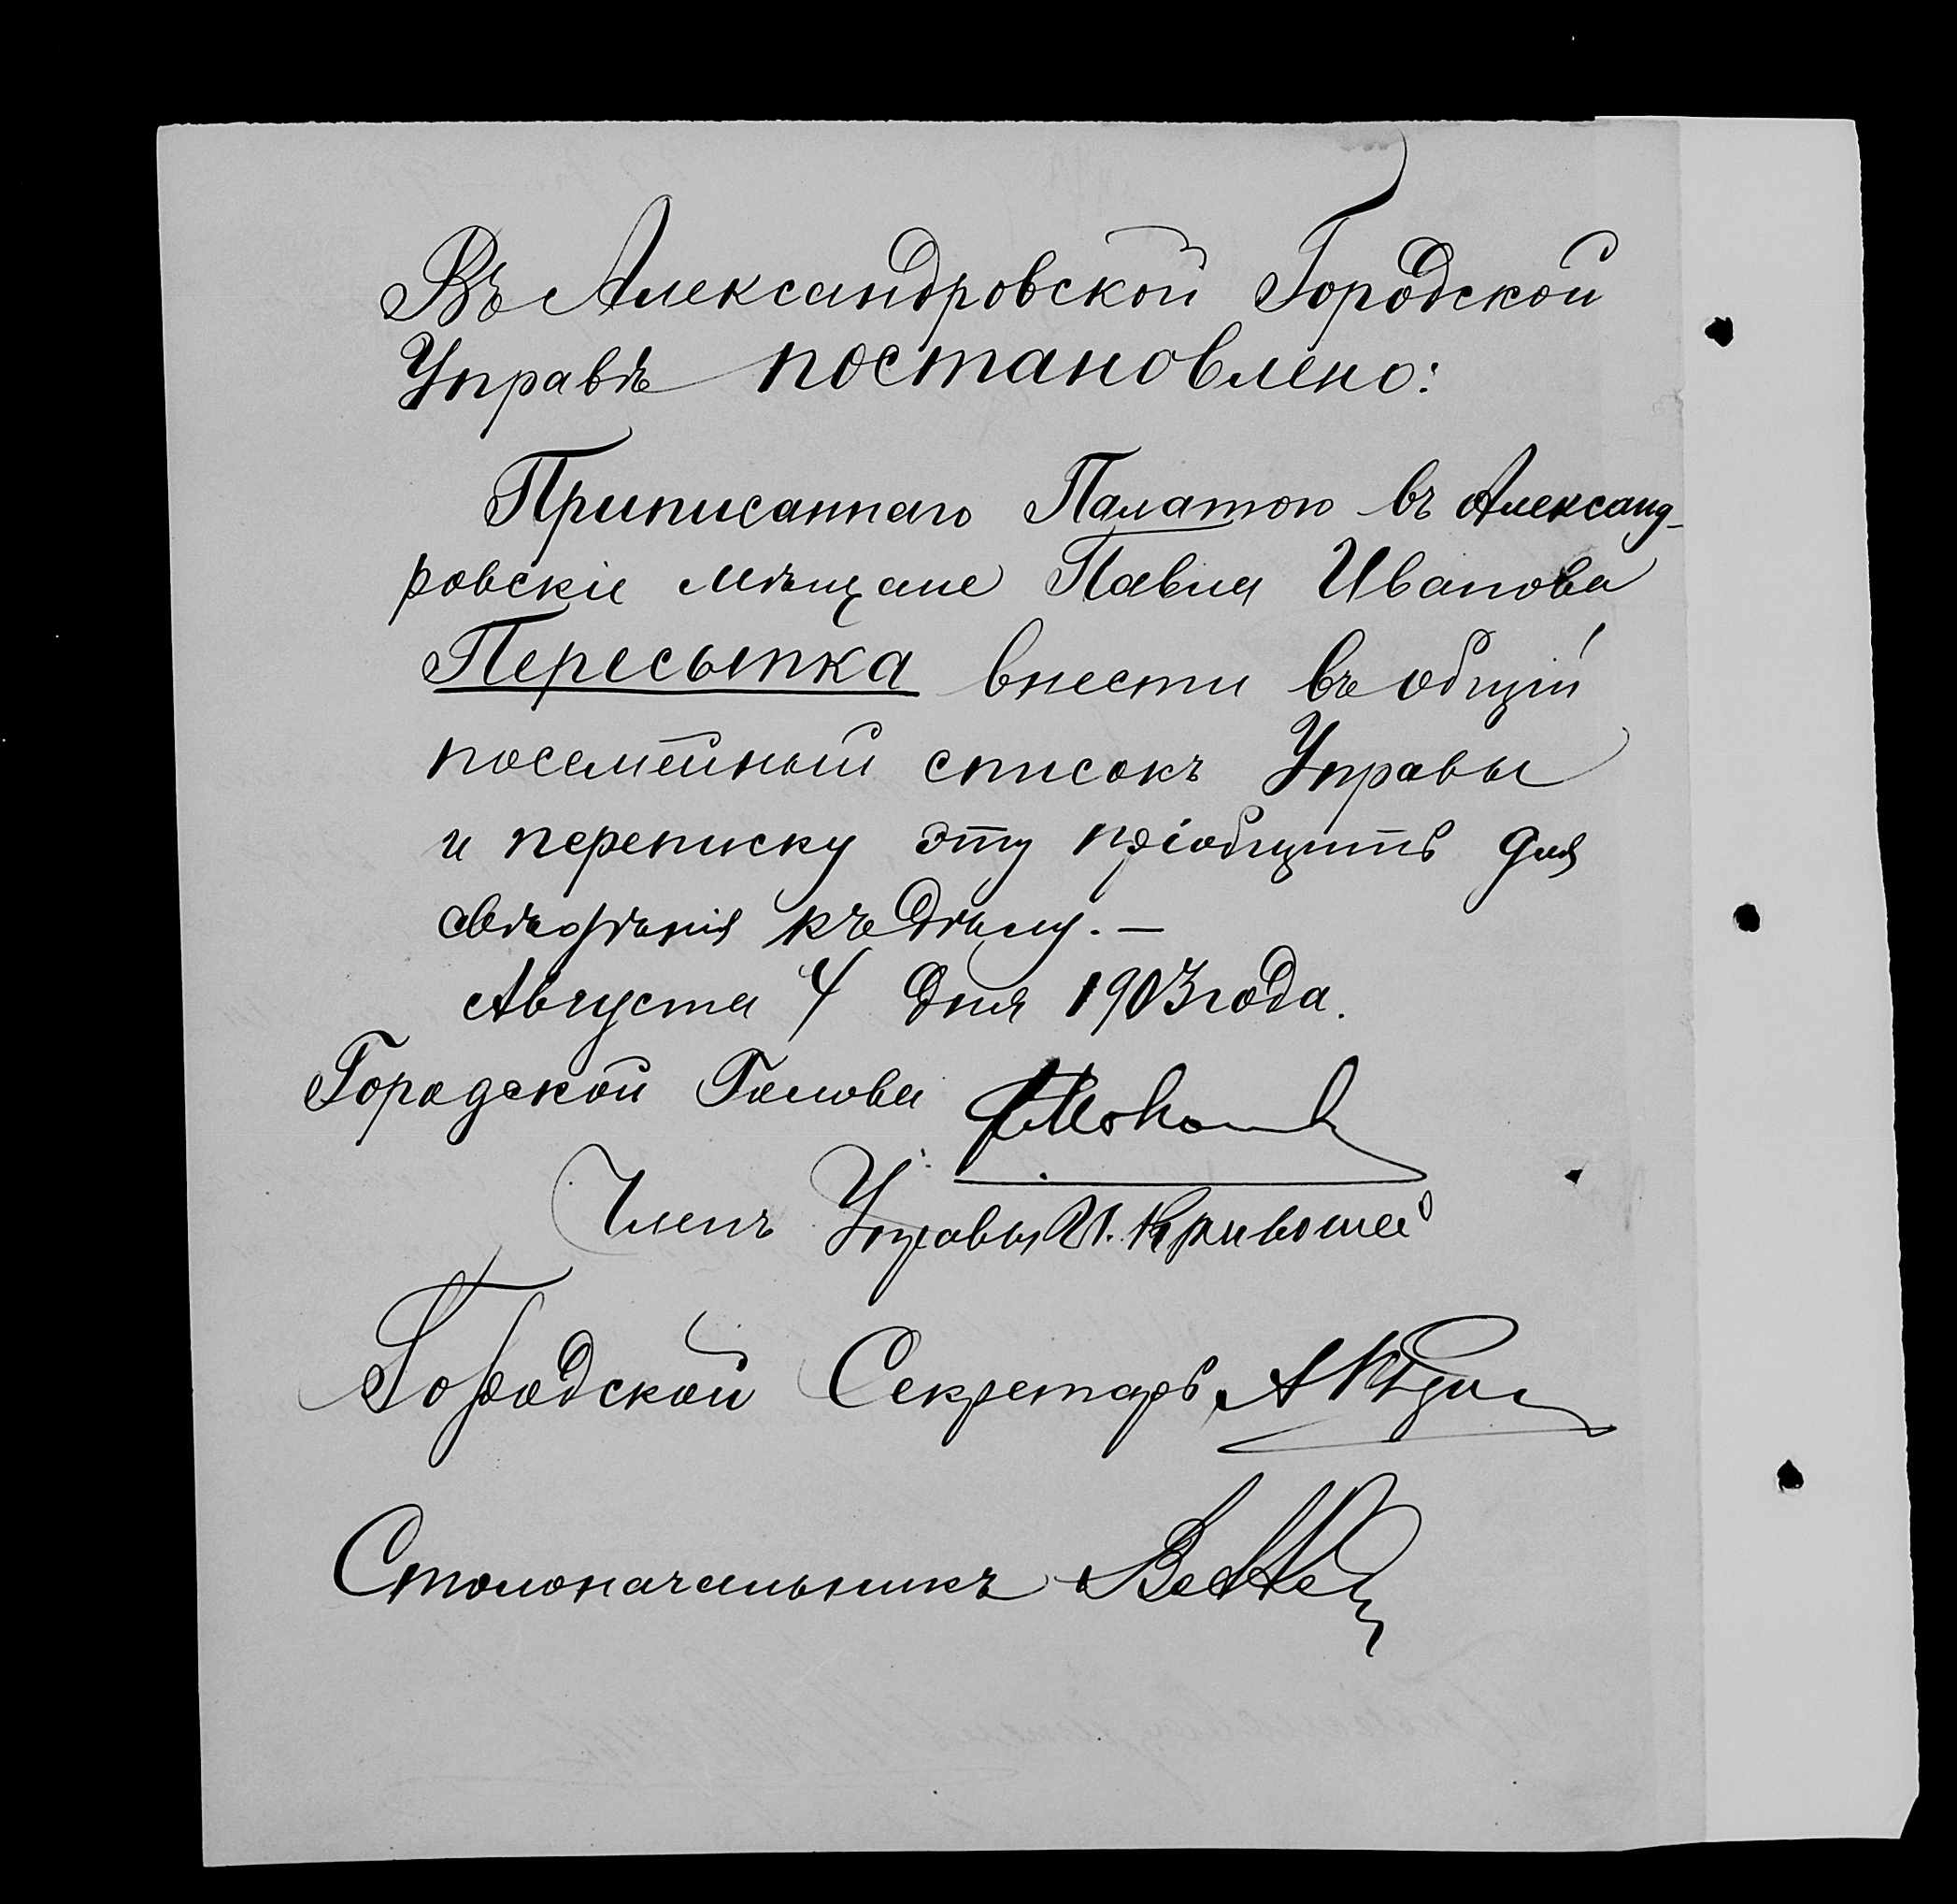 Въ Александровской Городской
Управѣ постановлено:
Приписаннаго Палатою въ Александ-
ровскіе мѣщане Павла Иванова
Пересыпка внести въ общій
посемейный списокъ Управы
и переписку эту пріобщить для
свѣдѣнія къ дѣлу. —
Августа 4 дня 1903 года.
Городской Голова
Членъ Управы И. Кривошей
Городской Секретарь
Столоначальникъ